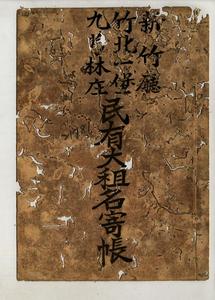 新竹廳
竹北一堡
九林庄
民有大租名寄帳